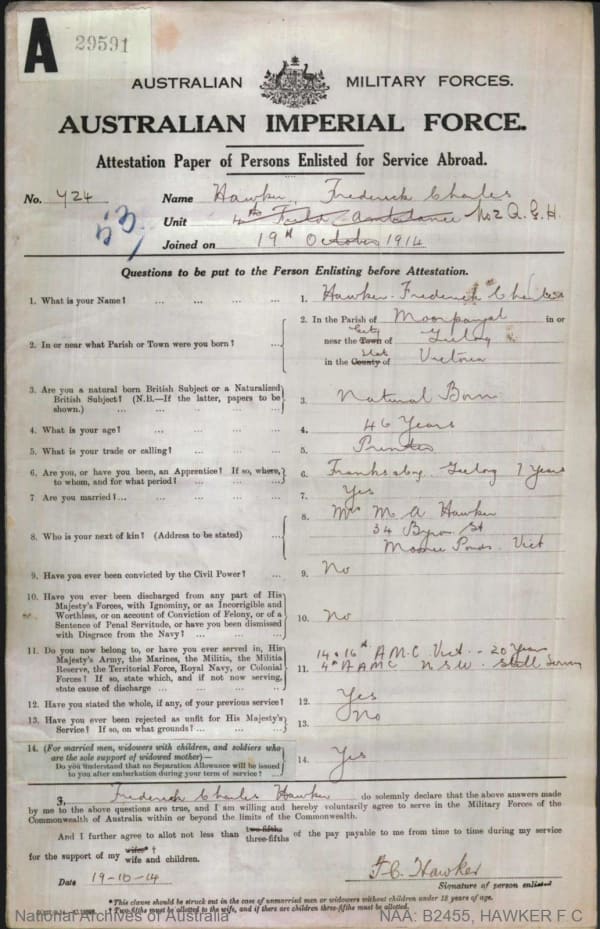 A
29591
AUSTRALIAN MILITARY FORCES.
AUSTRALIAN IMPERIAL FORCE.
Attestation Paper of Persons Enlisted for Service Abroad.
No. 424 Name Hawker, Frederick Charles
Unit 4th Field Ambulance No 2 A.G.H.
Joined on 19th October 1914
Questions to be put to the Person Enlisting before Attestation.
1. What is your Name? ... ... ... ... 1. Hawker Frederick Charles
2. In or near what Parish or Town were you born? ... 2. In the Parish of in or
near the Town of City Geelong
in the County of State Victoria
3. Are you a natural born British Subject or a Naturalized
British Subject? (N.B.—If the latter, papers to be
shown.) ... ... ... ... ... 3. Natural Born
4. What is your age? ... ... ... ... 4. 46 Years
5. What is your trade or calling? ... ... ... 5. Printer
6. Are you, or have you been, an Apprentice? If so, where,
to whom, and for what period? ... ... ... 6. Geelong 7 Years
7. Are you married?... ... ... ... ... 7. Yes
8. Who is your next of kin? (Address to be stated) ... 8. Mrs M A Hawker
34 Byron St
Moonee Ponds. Vict
9. Have you ever been convicted by the Civil Power? ... 9. No
10. Have you ever been discharged from any part of His
Majesty's Forces, with Ignominy, or as Incorrigible and
Worthless, or on account of Conviction of Felony, or of a
Sentence of Penal Servitude, or have you been dismissed
with Disgrace from the Navy? ... ... ... 10. No
11. Do you now belong to, or have you ever served in, His
Majesty's Army, the Marines, the Militia, the Militia
Reserve, the Territorial Force, Royal Navy, or Colonial
Forces? If so, state which, and if not now serving,
state cause of discharge ... ... ... ... 11. 14 & 16th A.M.C. Vict. - 20 Years
4th A A M C N.S.W. - Still Serving
12. Have you stated the whole, if any, of your previous service? 12. Yes
13. Have you ever been rejected as unfit for His Majesty's
Service? If so, on what grounds? ... ... ... 13. No
14. (For married men, widowers with children, and soldiers who
are the sole support of widowed mother)—
Do you understand that no Separation Allowance will be issued
to you after embarkation during your term of service? ... 14. Yes
I, Frederick Charles Hawker do solemnly declare that the above answers made
by me to the above questions are true, and I am willing and hereby voluntarily agree to serve in the Military Forces of the
Commonwealth of Australia within or beyond the limits of the Commonwealth.
And I further agree to allot not less than two-fifths three-fifths of the pay payable to me from time to time during my service
for the support of my wife* † wife and children.
Date 19-10-14 F. C. Hawker
Signature of person enlisted
* This clause should be struck out in the case of unmarried men or widowers without children under 18 years of age.
† Two-fifths must be allotted to the wife, and if there are children three-fifths must be allotted.
National Archives of Australia NAA: B2455, HAWKER F C